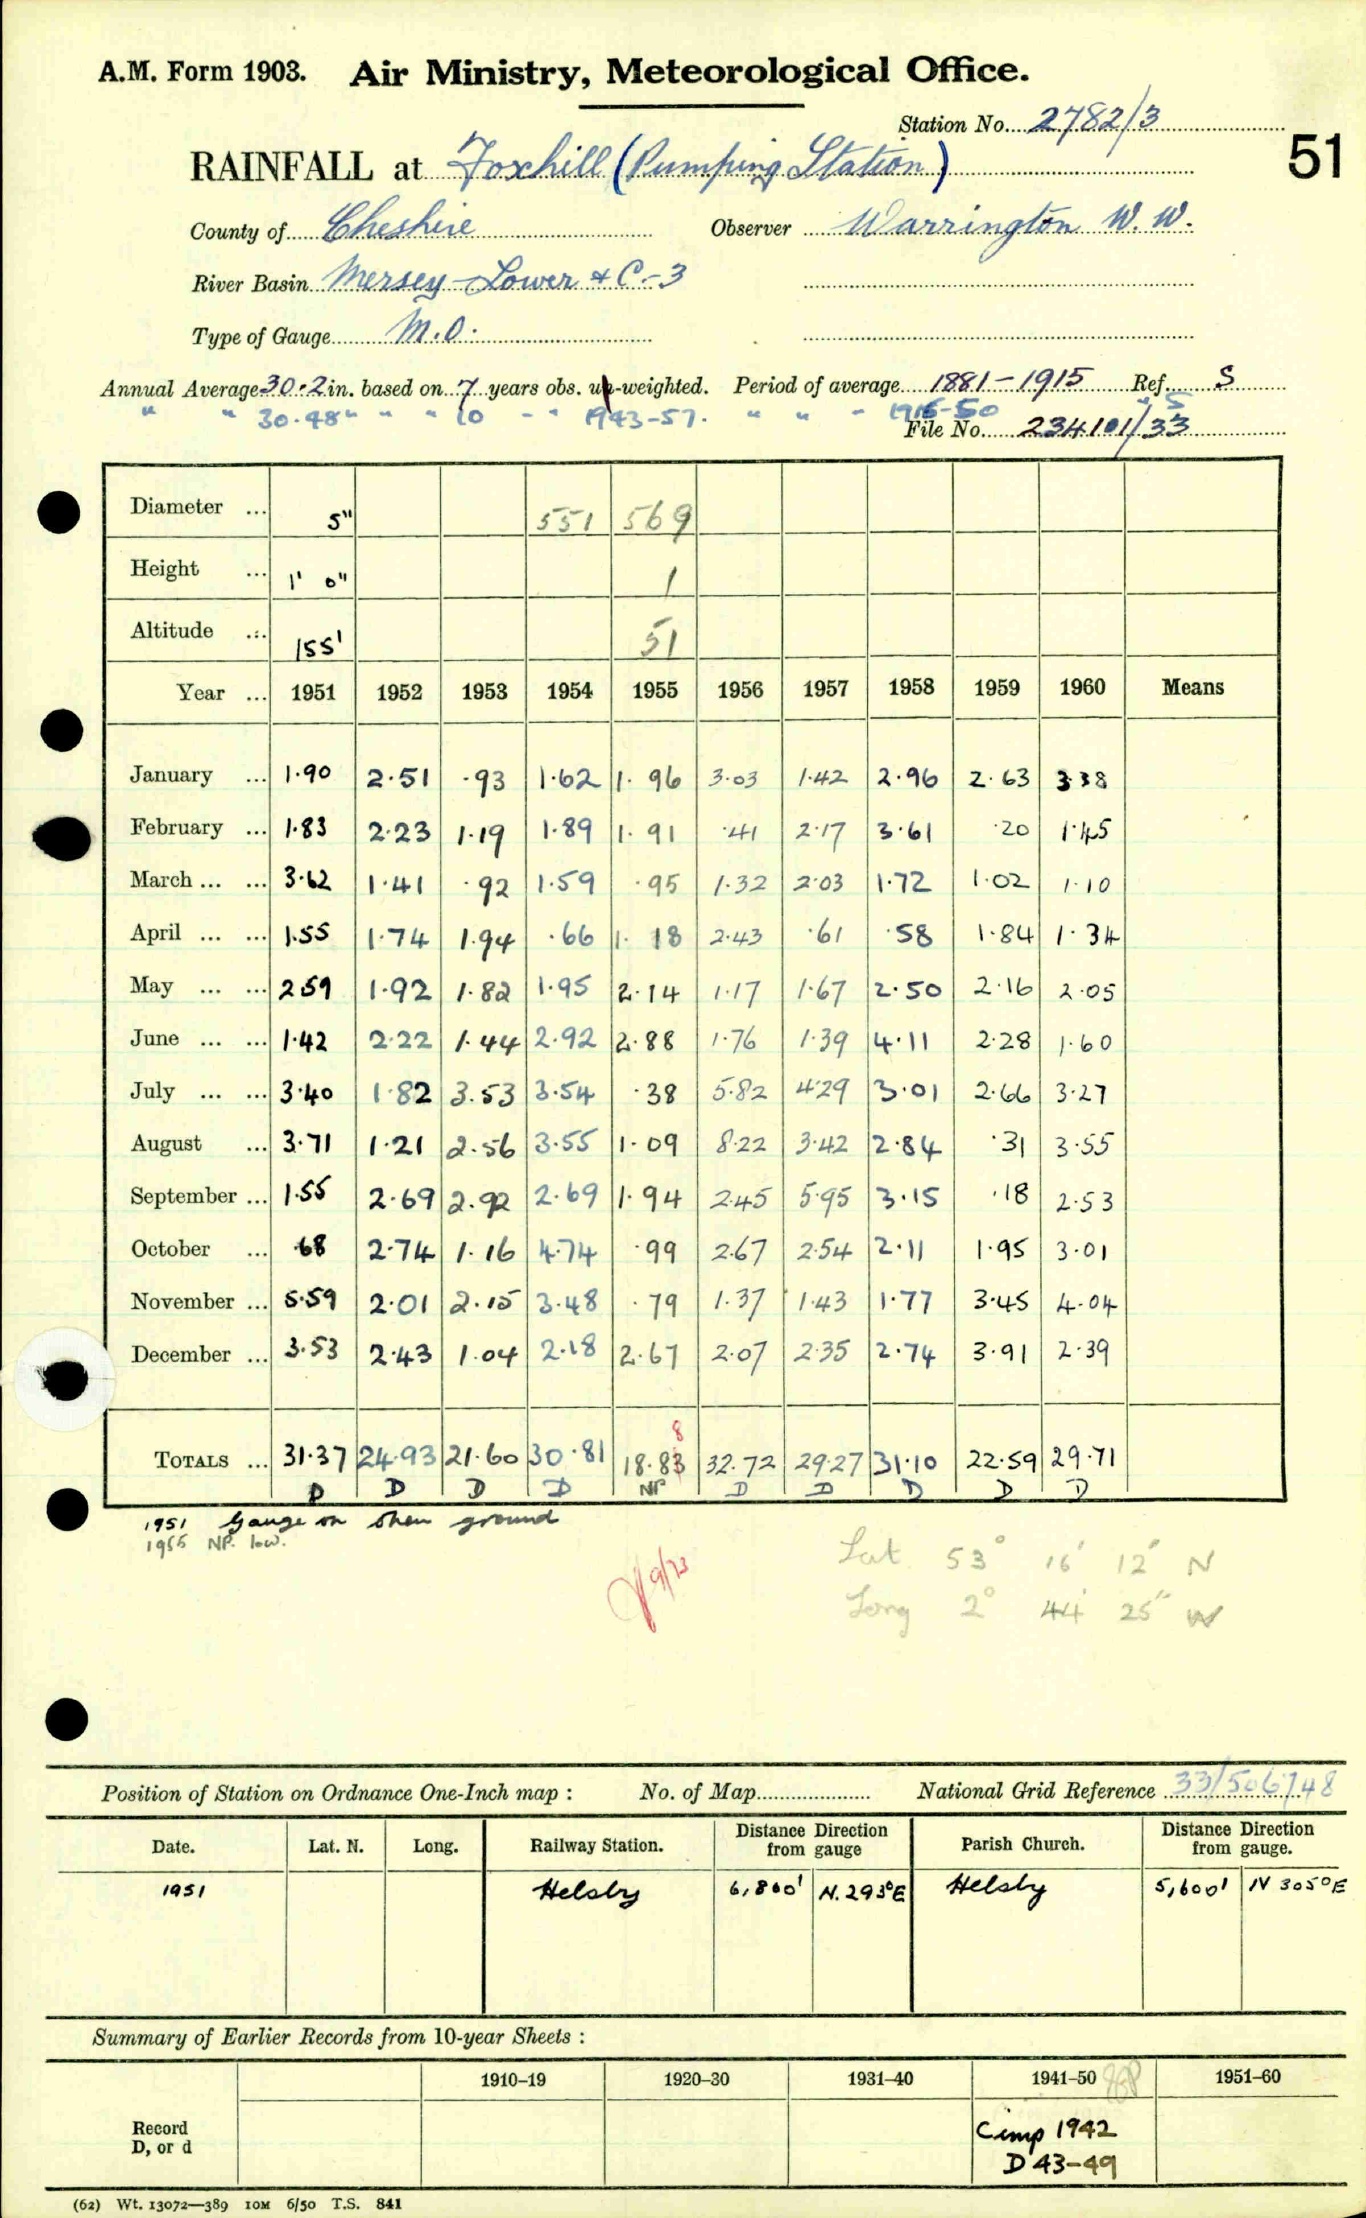 A.M. Form 1903. Air Ministry, Meteorological Office.
Station No. 2782/3
51
RAINFALL at Foxhill (Pumping Station)
County of Cheshire Observer Warrington W.W.
River Basin Mersey-Lower & C-3
Type of Gauge M.O.
Annual Average 30.2 in. based on 7 years obs. un-weighted. Period of average 1881-1915 Ref. S
" " 30.48 " " " 10 " " 1943-57. " " " 1916-50 " S
File No. 234101/33
Diameter ... 5" 551 569
Height ... 1' 0" 1
Altitude ... 155' 51
Year ... 1951 1952 1953 1954 1955 1956 1957 1958 1959 1960 Means
January ... 1.90 2.51 .93 1.62 1.96 3.03 1.42 2.96 2.63 3.38
February ... 1.83 2.23 1.19 1.89 1.91 .41 2.17 3.61 .20 1.45
March ... ... 3.62 1.41 .92 1.59 .95 1.32 2.03 1.72 1.02 1.10
April ... ... 1.55 1.74 1.94 .66 1.18 2.43 .61 .58 1.84 1.34
May ... ... 2.59 1.92 1.82 1.95 2.14 1.17 1.67 2.50 2.16 2.05
June ... ... 1.42 2.22 1.44 2.92 2.88 1.76 1.39 4.11 2.28 1.60
July ... ... 3.40 1.82 3.53 3.54 .38 5.82 4.29 3.01 2.66 3.27
August ... 3.71 1.21 2.56 3.55 1.09 8.22 3.42 2.84 .31 3.55
September ... 1.55 2.69 2.92 2.69 1.94 2.45 5.95 3.15 .18 2.53
October ... .68 2.74 1.16 4.74 .99 2.67 2.54 2.11 1.95 3.01
November ... 5.59 2.01 2.15 3.48 .79 1.37 1.43 1.77 3.45 4.04
December ... 3.53 2.43 1.04 2.18 2.67 2.07 2.35 2.74 3.91 2.39
8
TOTALS ... 31.37 24.93 21.60 30.81 18.83 32.72 29.27 31.10 22.59 29.71
D D D D NP D D D D D
1951 Gauge on open ground
1955 NP. low.
9/73
Lat. 53° 16' 12" N
Long 2° 44' 25" W
Position of Station on Ordnance One-Inch map : No. of Map National Grid Reference 33/506748
Date. Lat. N. Long. Railway Station. Distance from Direction gauge Parish Church. Distance from Direction gauge.
1951 Helsby 6,800' N.293°E Helsby 5,600' N 305°E
Summary of Earlier Records from 10-year Sheets :
1910-19 1920-30 1931-40 1941-50 1951-60
Record D, or d
Cimp 1942
D 43-49
(62) Wt. 13072—389 10M 6/50 T.S. 841